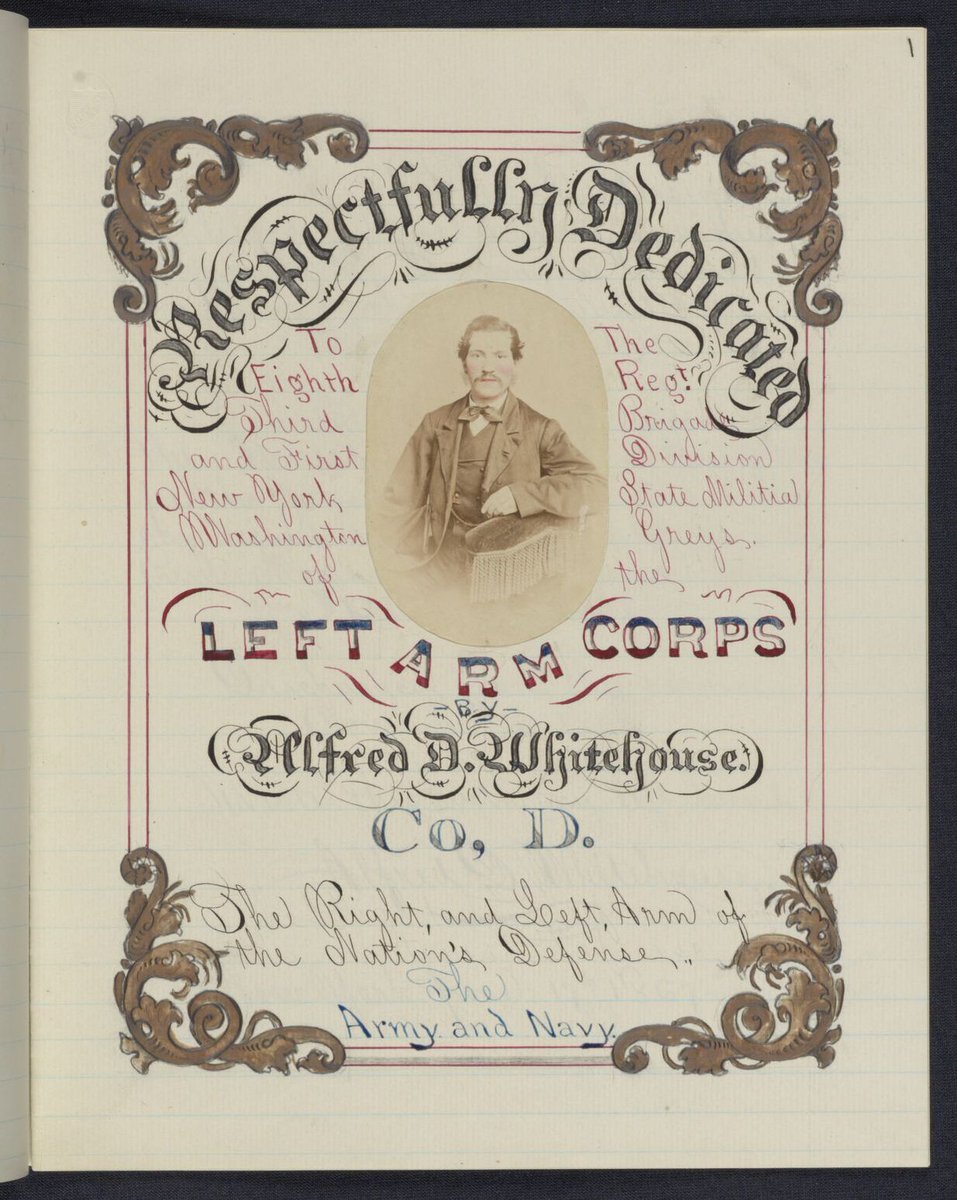 1
Respectfully Dedicated
To The
Eighth Regt.
Third Brigade
and First Division
New York State Militia
Washington Greys.
of the
LEFT ARM CORPS
- By -
Alfred D. Whitehouse.
Co, D.
The Right, and Left, Arm of
the Nation's Defense..
The
Army and Navy.